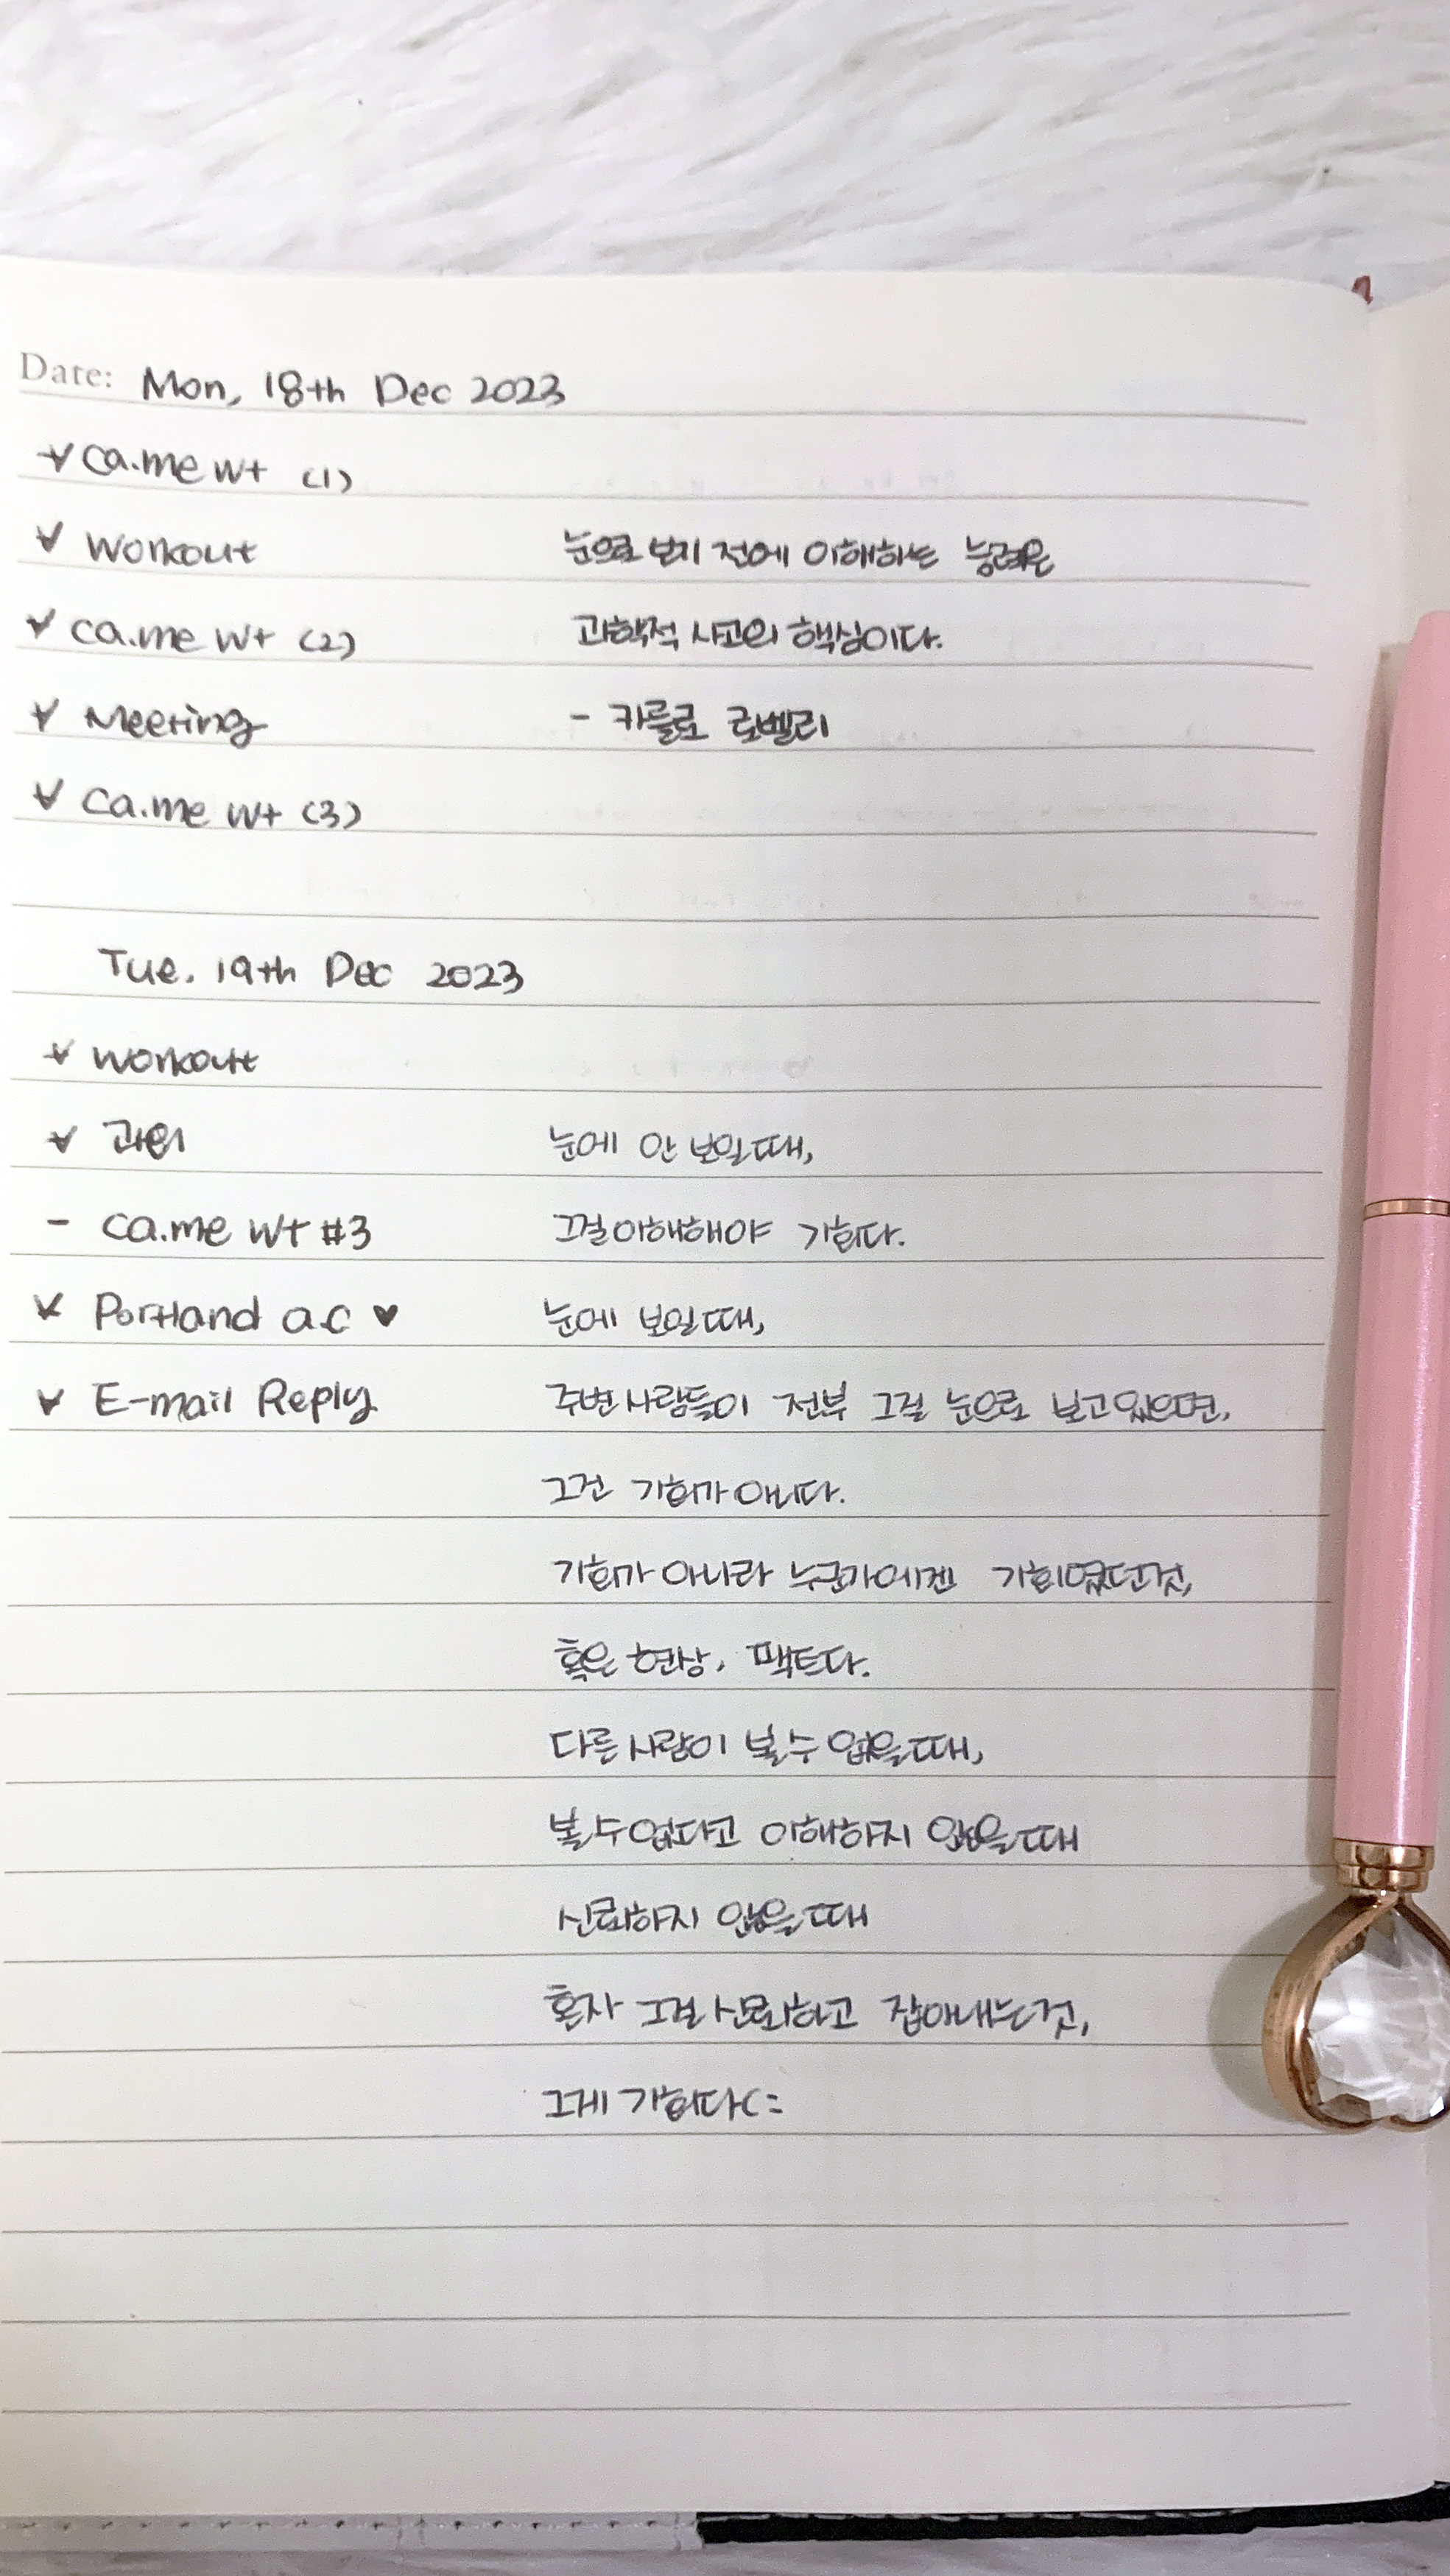 Date: Mon, 18th Dec 2023
ca.me wt (1)
workout 눈으로 보기 전에 이해하는 능력은
ca.me wt (2) 과학적 사고의 핵심이다.
Meeting - 카를로 로벨리
ca.me wt (3)
Tue. 19th Dec 2023
workout
과외 눈에 안 보일때,
- ca.me wt #3 그걸이해해야 기회다.
Portland a.c ♥ 눈에 보일때,
E-mail Reply 주변사람들이 전부 그걸 눈으로 보고있으면,
그건 기회가아니다.
기회가 아니라 누군가에겐 기회였던것,
혹은 현상, 팩트다.
다른사람이 볼수 없을때,
볼수없다고 이해하지 않을때
신뢰하지 않을때
혼자 그걸신뢰하고 잡아내는것,
그게 기회다(: